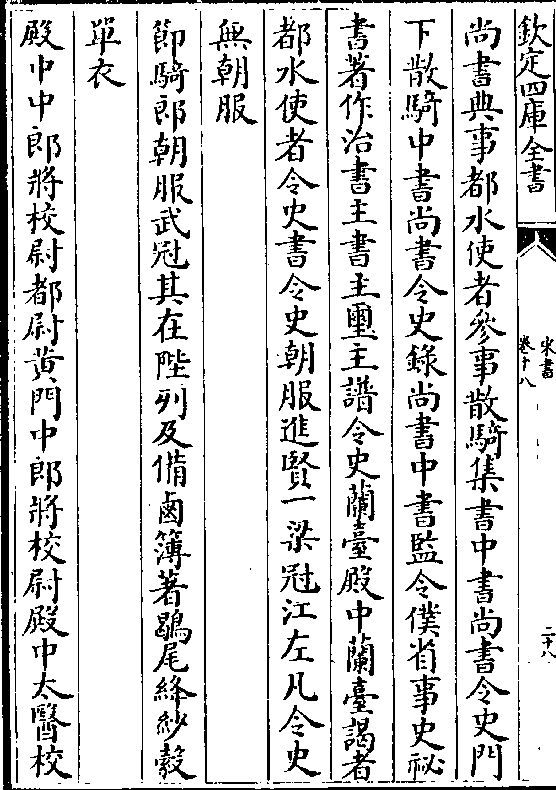 欽定四庫全書
宋書
卷十八
二十八
尚書典事都水使者參事散騎集書中書尚書令史門
下散騎中書尚書令史錄尚書中書監令僕省事史祕
書著作治書主書主璽主譜令史蘭臺殿中蘭臺謁者
都水使者令史書令史朝服進賢一梁冠江左凡令史
無朝服
節騎郎朝服武冠其在陛列及備鹵簿著鶡尾絳紗縠
單衣
殿中中郎將校尉都尉黃門中郎將校尉殿中太醫校